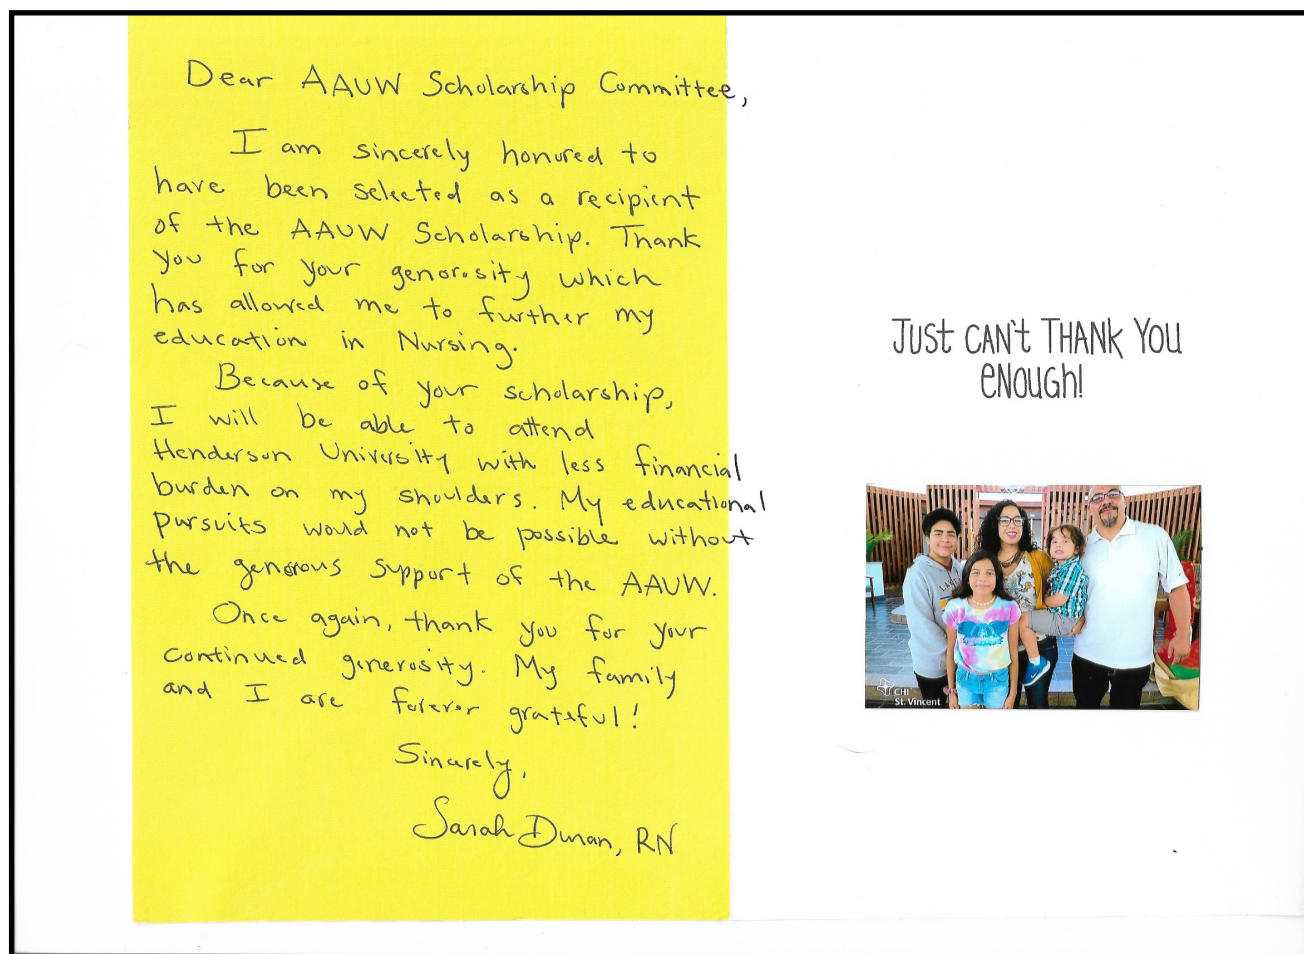 Dear AAUW Scholarship Committee,
I am sincerely honored to
have been selected as a recipient
of the AAUW Scholarship. Thank
you for your generosity which
has allowed me to further my
education in Nursing.
Because of your scholarship,
I will be able to attend
Henderson University with less financial
burden on my shoulders. My educational
pursuits would not be possible without
the generous support of the AAUW.
Once again, thank you for your
continued generosity. My family
and I are forever grateful!
Sincerely,
Sarah Duran, RN
JUST CAN'T THANK YOU
ENOUGH!
CHI
St. Vincent